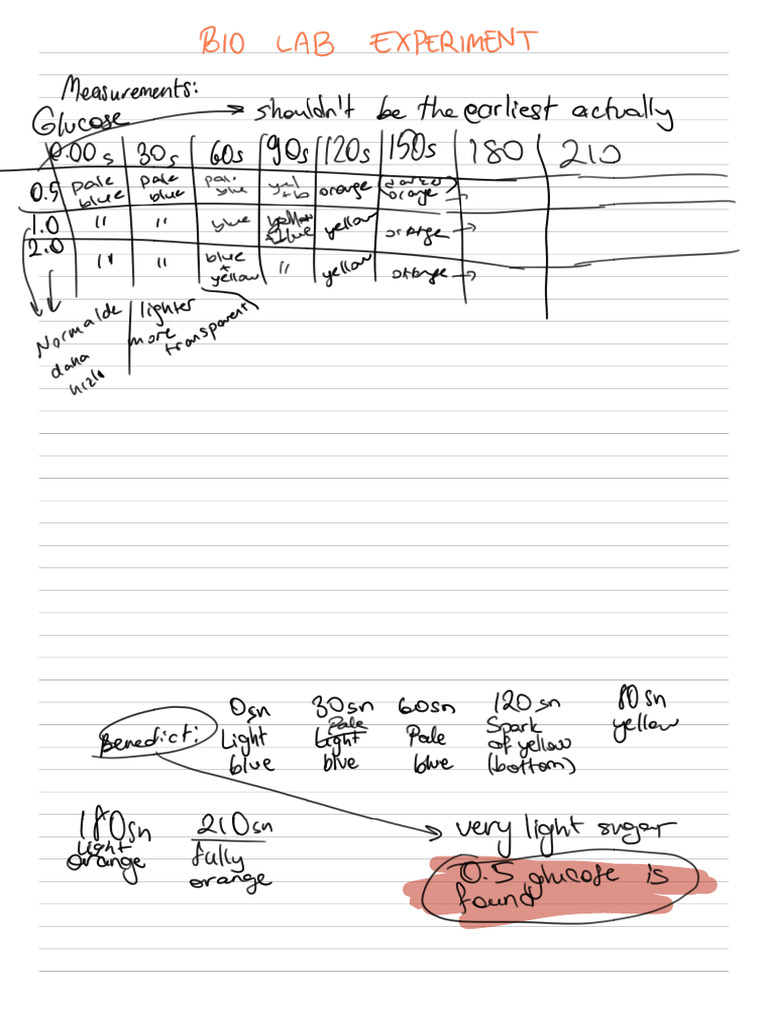 BIO LAB EXPERIMENT
Measurements:
Glucose → shouldn't be the earliest actually
0.00s 30s 60s 90s 120s 150s 180 210
0.5 pale blue pale blue pale blue yel +b orange (darker) orange →
1.0 " " blue yellow + blue yellow orange →
2.0 " " blue + yellow " yellow orange →
Normalde daha hızlı
lighter more transparent
Benedict:
0sn 30sn 60sn 120sn 80sn
Light blue Pale blue Pale blue Spark of yellow (bottom) yellow
180sn 210sn
Light orange fully orange
very light sugar
0.5 glucose is
found